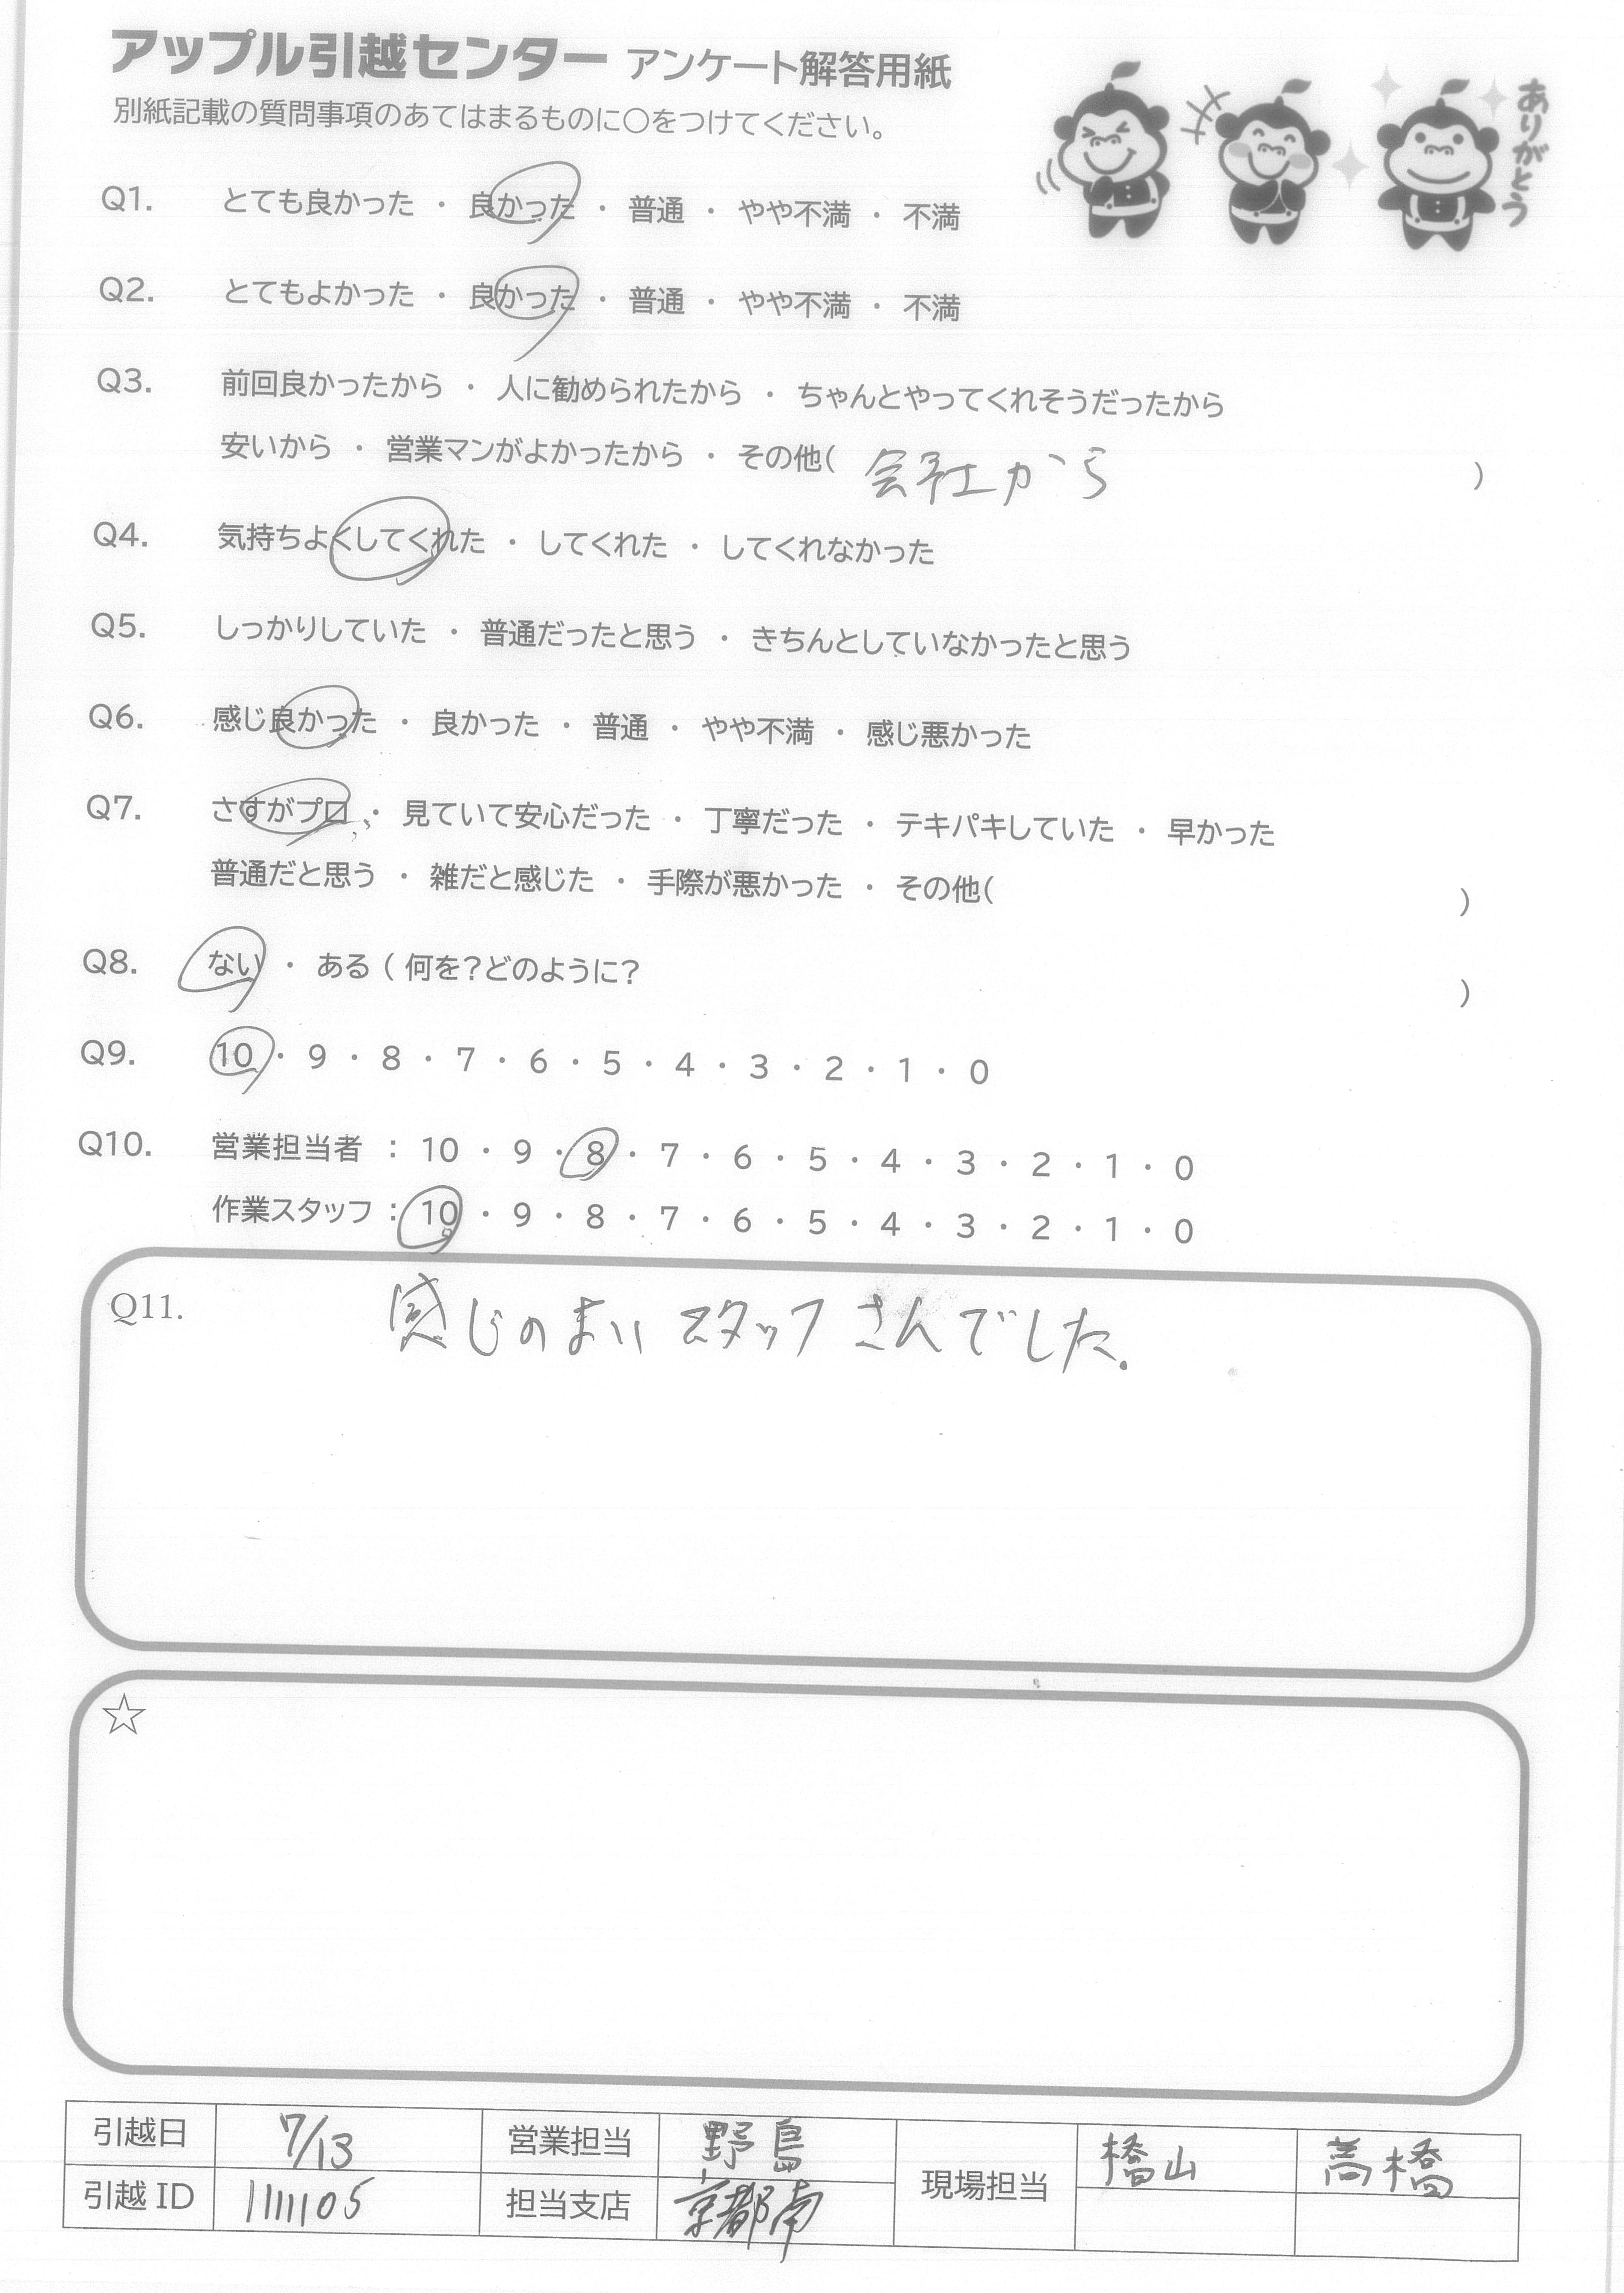 アップル引越センター アンケート解答用紙
別紙記載の質問事項のあてはまるものに○をつけてください。
ありがとう
Q1. とても良かった ・ 良かった ・ 普通 ・ やや不満 ・ 不満
Q2. とてもよかった ・ 良かった ・ 普通 ・ やや不満 ・ 不満
Q3. 前回良かったから ・ 人に勧められたから ・ ちゃんとやってくれそうだったから
安いから ・ 営業マンがよかったから ・ その他( 会社から )
Q4. 気持ちよくしてくれた ・ してくれた ・ してくれなかった
Q5. しっかりしていた ・ 普通だったと思う ・ きちんとしていなかったと思う
Q6. 感じ良かった ・ 良かった ・ 普通 ・ やや不満 ・ 感じ悪かった
Q7. さすがプロ ・ 見ていて安心だった ・ 丁寧だった ・ テキパキしていた ・ 早かった
普通だと思う ・ 雑だと感じた ・ 手際が悪かった ・ その他( )
Q8. ない ・ ある ( 何を?どのように? )
Q9. 10 ・ 9 ・ 8 ・ 7 ・ 6 ・ 5 ・ 4 ・ 3 ・ 2 ・ 1 ・ 0
Q10. 営業担当者 : 10 ・ 9 ・ 8 ・ 7 ・ 6 ・ 5 ・ 4 ・ 3 ・ 2 ・ 1 ・ 0
作業スタッフ : 10 ・ 9 ・ 8 ・ 7 ・ 6 ・ 5 ・ 4 ・ 3 ・ 2 ・ 1 ・ 0
Q11. 感じのよい スタッフ さんでした.
☆
引越日 7/13 営業担当 野島 現場担当 橋山 高橋
引越 ID 1111105 担当支店 京都南